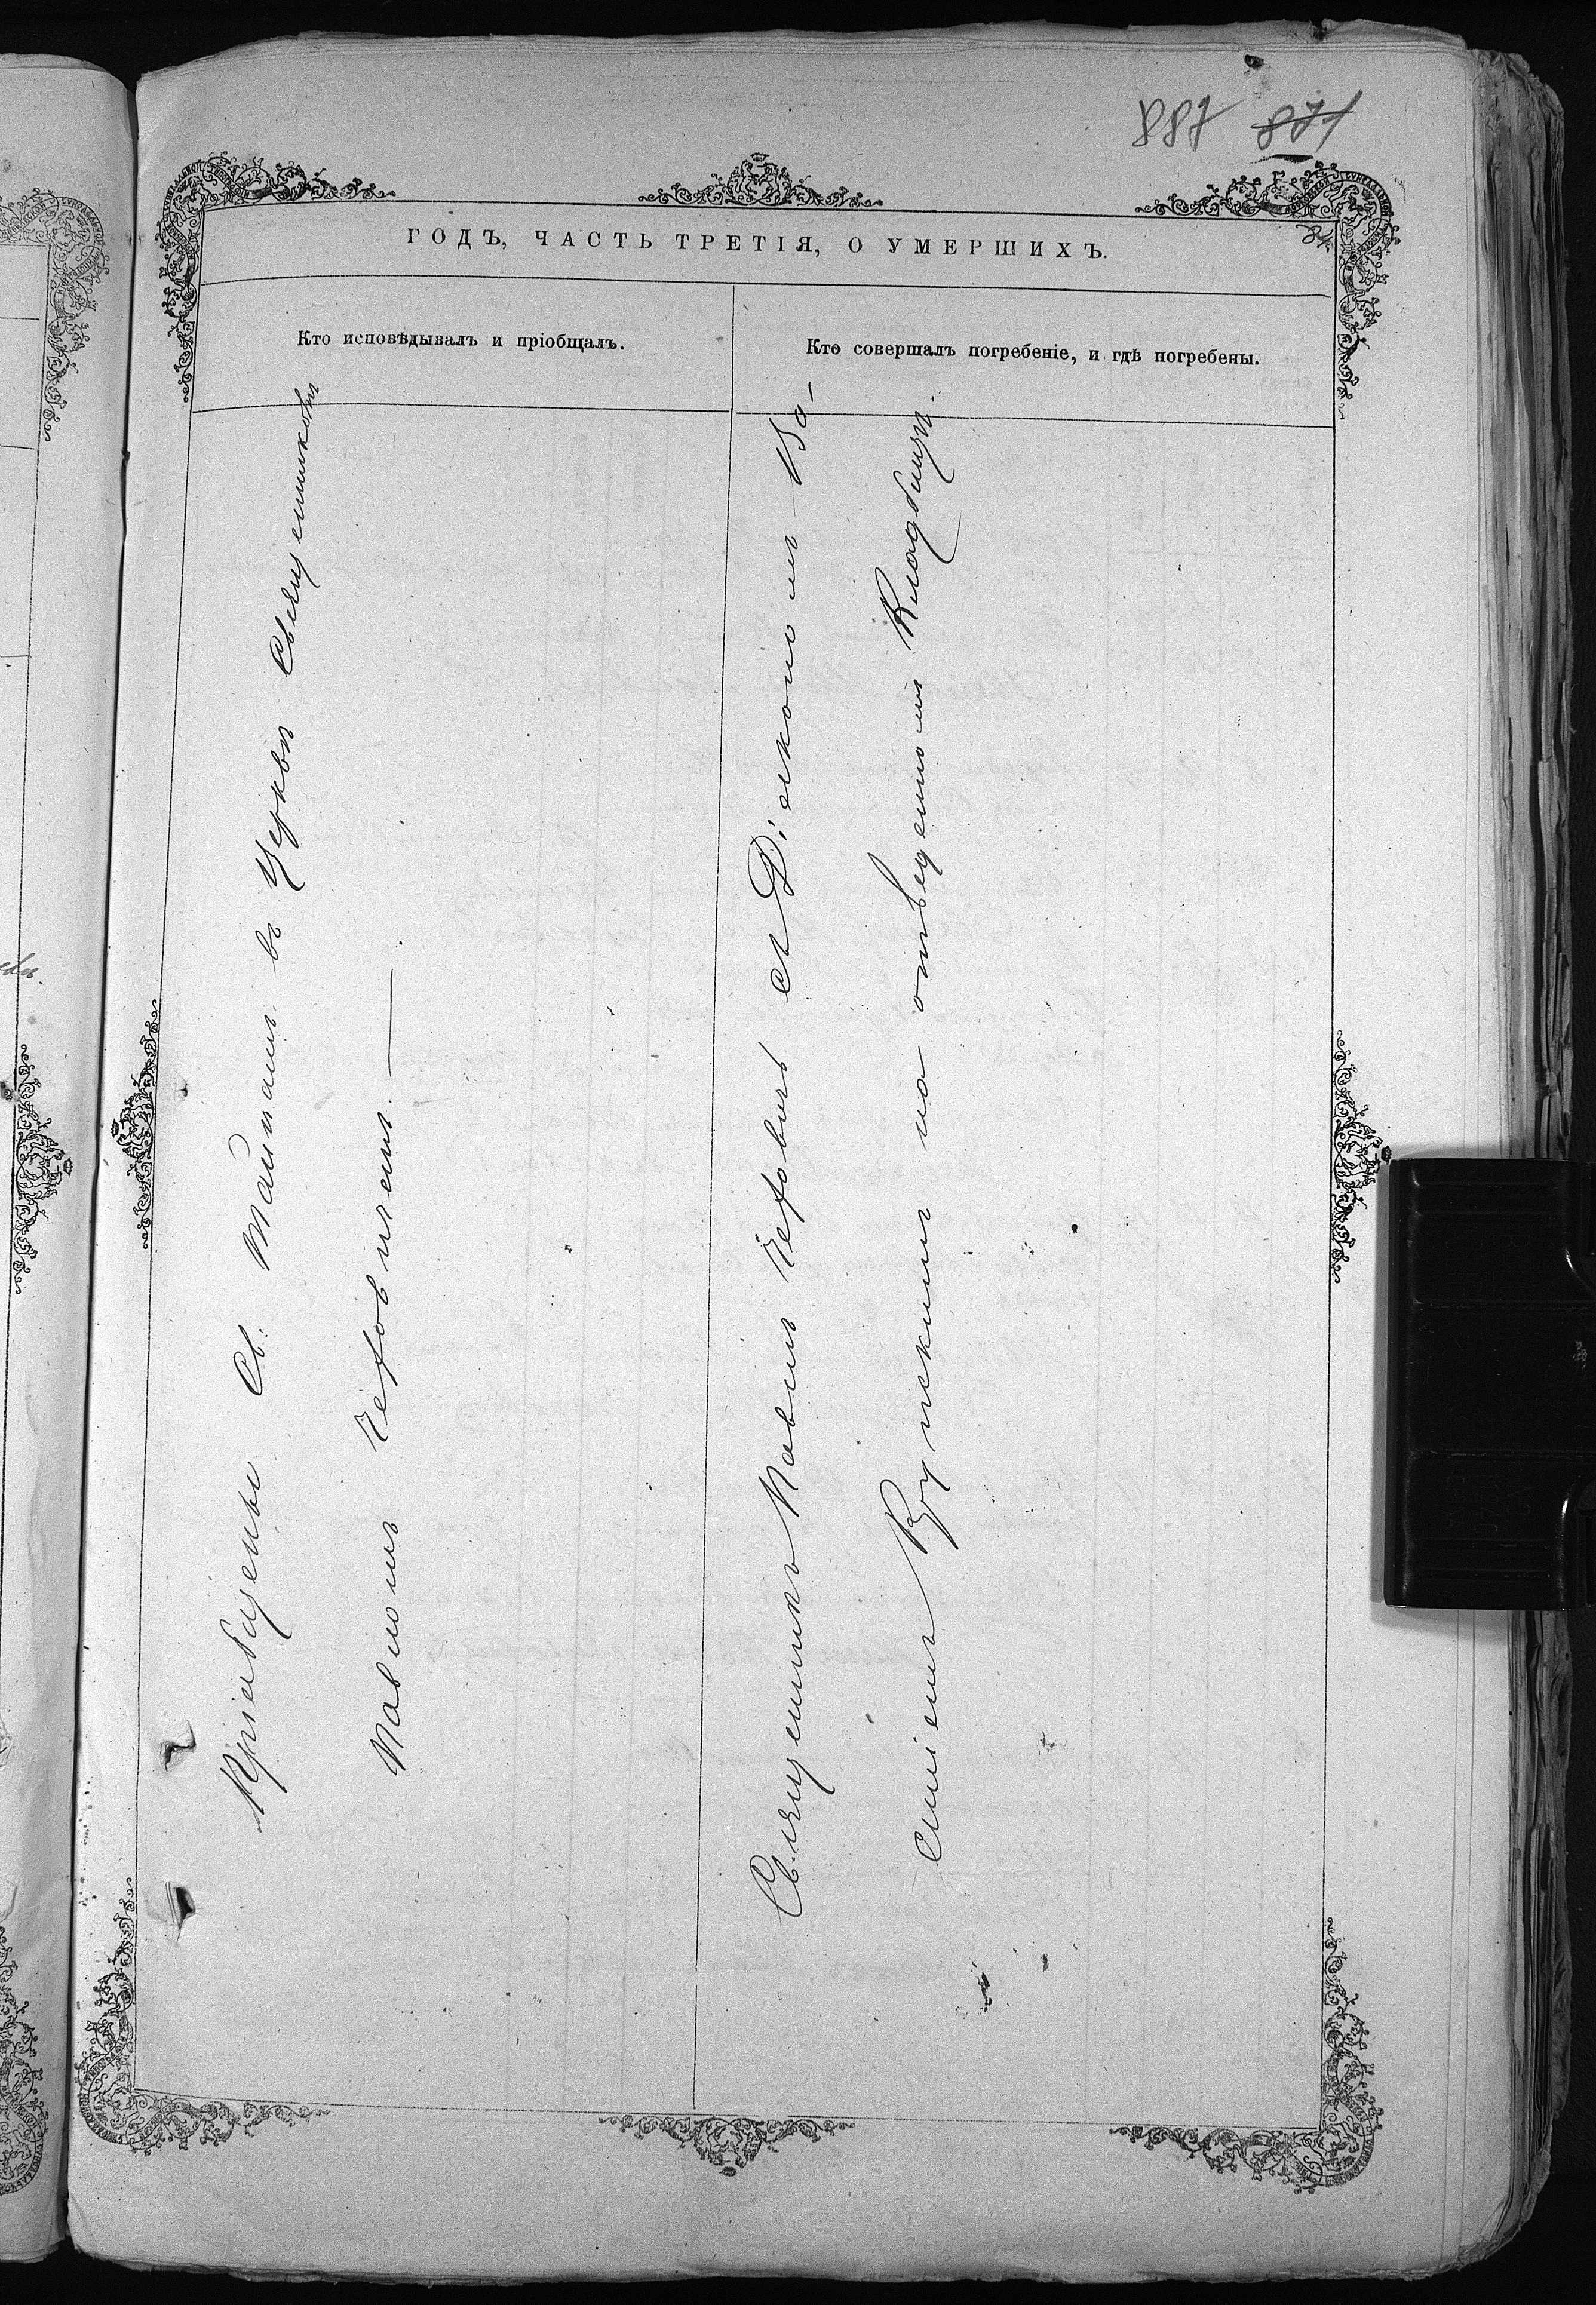 887 871
84
ГОДЪ, ЧАСТЬ ТРЕТІЯ, О УМЕРШИХЪ.
Кто исповѣдывалъ и пріобщалъ.
Кто совершалъ погребеніе, и гдѣ погребены.
Пріобщены Св. Тайнамъ въ Церкви Священникомъ
Павломъ Чеховичемъ.
Священникъ Павелъ Чеховичъ съ Діакономъ Ва-
силіемъ на отведенномъ Кладбищѣ.